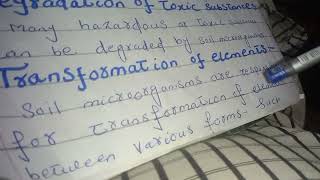 egradation of Toxic Substances
many hazardous a toxic
can be degraded by soil
Transformation of elements-
Soil microorganisms are
for transformation of
between various forms- Such